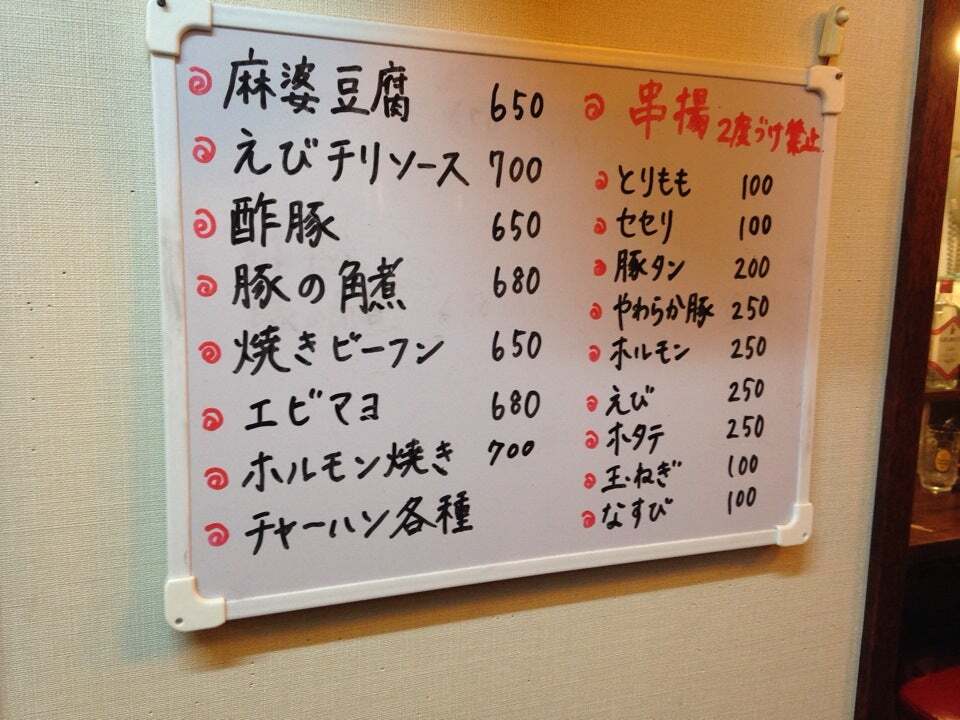 麻婆豆腐 650
えびチリソース 700
酢豚 650
豚の角煮 680
焼きビーフン 650
エビマヨ 680
ホルモン焼き 700
チャーハン各種
串揚 2度づけ禁止
とりもも 100
セセリ 100
豚タン 200
やわらか豚 250
ホルモン 250
えび 250
ホタテ 250
玉ねぎ 100
なすび 100